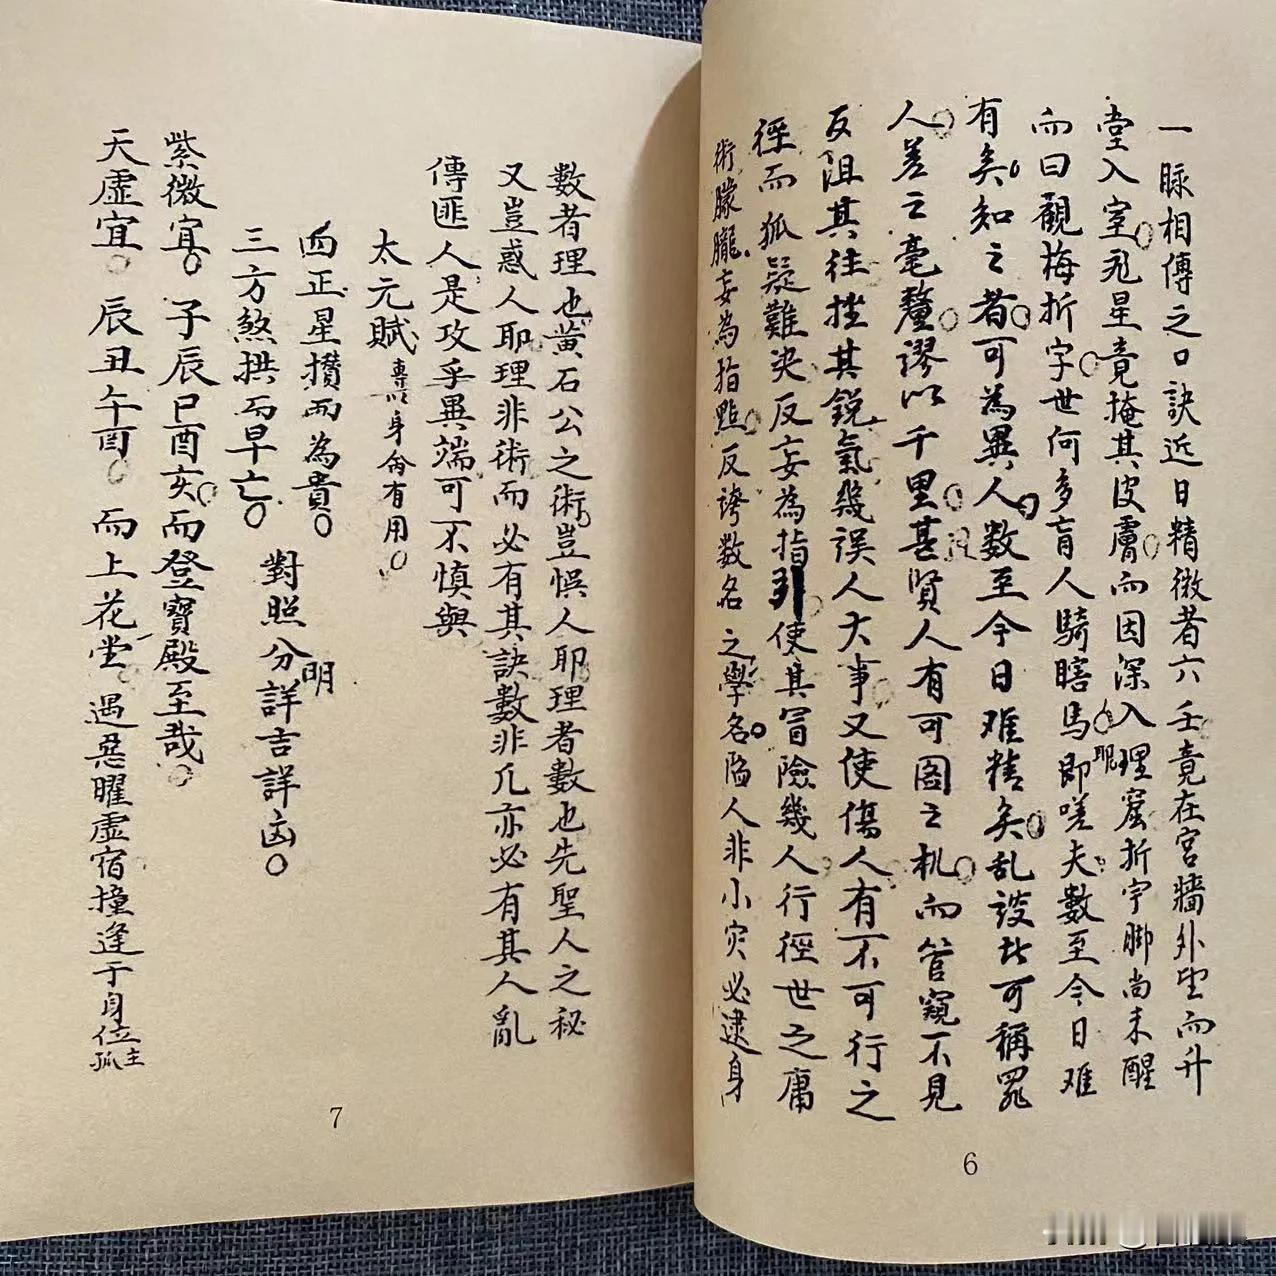 一脉相傳之口訣近日精微者六壬竟在宮牆外望而升
堂入室九星竟掩其皮膚而因深入理窟折字脚尚未醒
而曰觀梅折字世何多盲人騎瞎馬即嗟夫數至今日难
眼
有矣知之者可為異人數至今日难精矣乱談此可稱罪
人差之毫釐謬以千里甚賢人有可圖之机而管窺不見
反阻其往挫其銳氣幾误人大事又使傷人有不可行之
徑而狐疑難決反妄為指引使其冒險幾人行徑世之庸
術朦朧妄為指點反誇数名之學名陷人非小灾必逮身
6
數者理也黄石公之術豈悮人耶理者數也先聖人之秘
又豈惑人耶理非術而必有其訣數非几亦必有其人亂
傳匪人是攻乎異端可不慎與
太元賦 專以身命有用
四正星攢而為貴
三方煞拱而早亡 對照分明詳吉詳凶
紫微宜 子辰巳酉亥而登寶殿至哉
天虛宜 辰丑午酉 而上花堂 遇惡曜虛宿撞逢于身位主孤
7